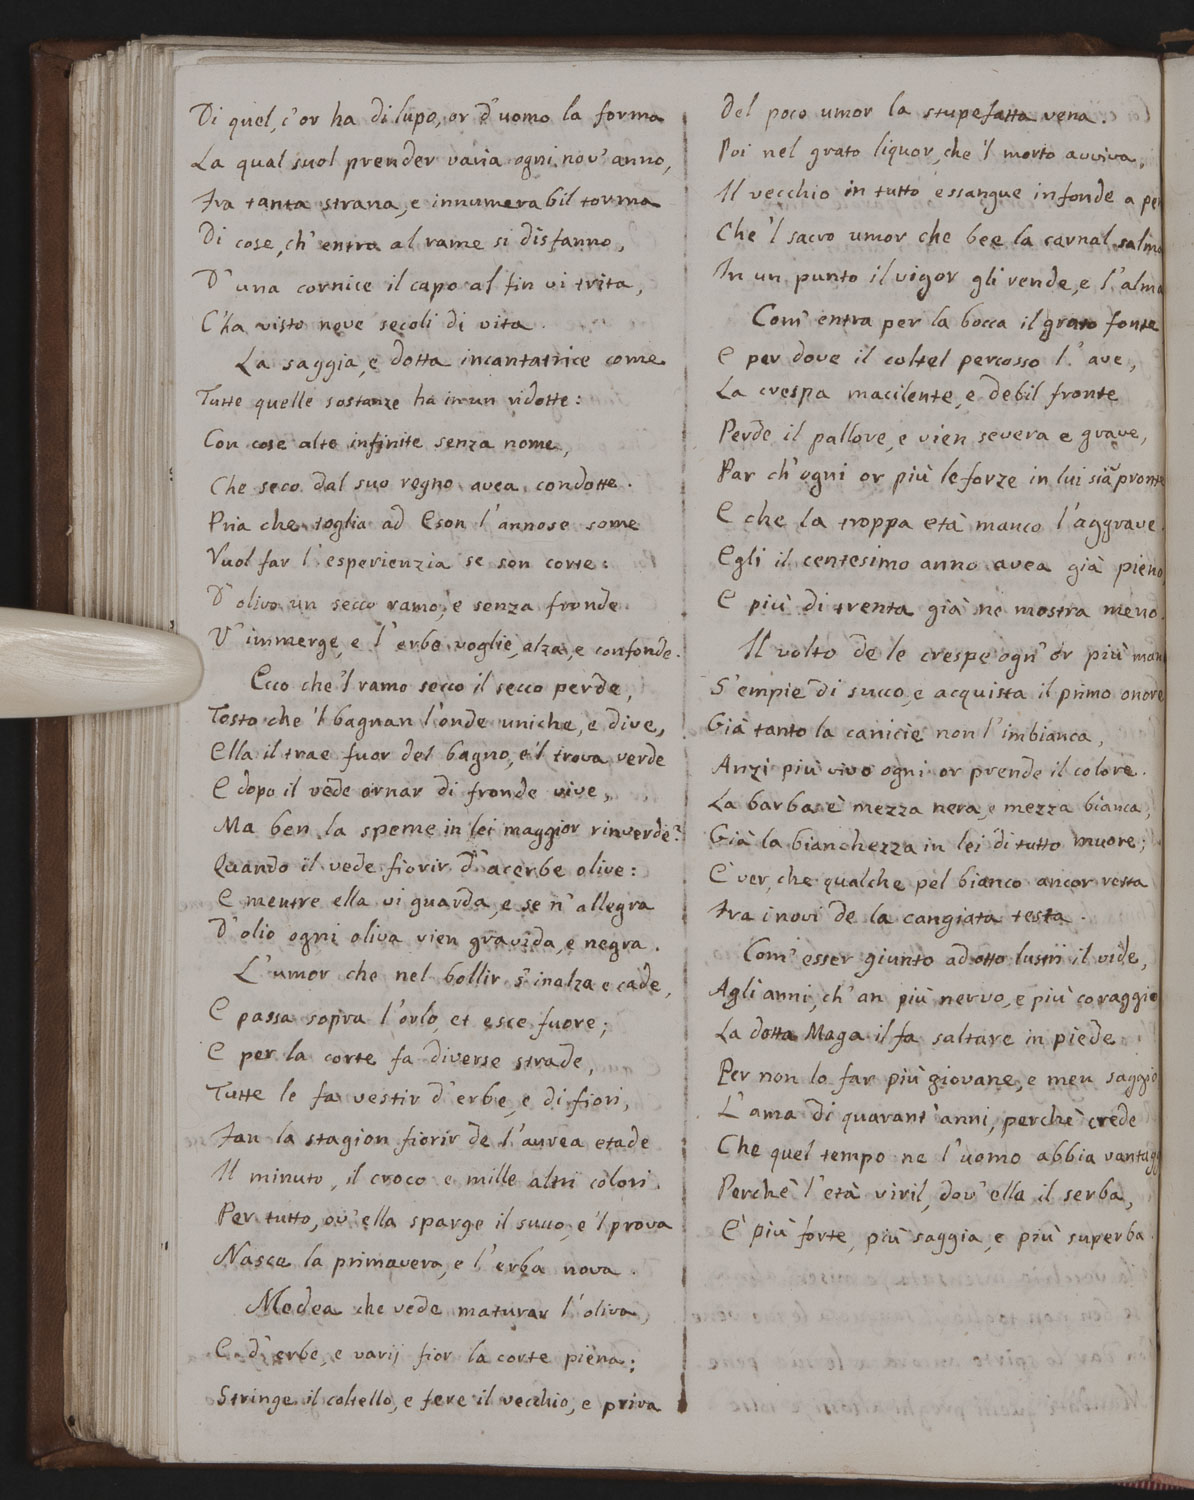 Di quel, c'or ha di lupo, or d'uomo la forma
La qual suol prender varia ogni nov' anno,
Fra tanta strana, e innumerabil torma
Di cose, ch' entro al rame si disfanno,
D' una cornice il capo al fin vi trita,
C'ha visto nove secoli di vita.
La saggia, e dotta incantatrice come
Tutte quelle sostanze ha in un ridotte:
Con cose alte infinite senza nome,
Che seco dal suo regno avea condotte.
Pria che toglia ad Eson l'annose some
Vuol far l'esperienzia se son corte:
D' olivo un secco ramo, e senza fronde
V' immerge, e l'erbe voglie, alza, e confonde.
Ecco che 'l ramo secco il secco perde,
Tosto che 'l bagnan l'onde uniche, e dive,
Ella il trae fuor del bagno, e 'l trova verde
E dopo il vede ornar di fronde vive,
Ma ben la speme in lei maggior rinverde?
Quando il vede fiorir d'acerbe olive:
E mentre ella vi guarda, e se n'allegra
D'olio ogni oliva vien gravida, e negra.
L'umor che nel bollir s'inalza e cade,
E passa sopra l'orlo, et esce fuore;
E per la corte fa diverse strade,
Tutte le fa vestir d'erbe, e di fiori,
Fan la stagion fiorir de l'aurea etade
Il minuto, il croco e mille altri colori.
Per tutto, ov' ella sparge il succo, e 'l prova
Nasce la primavera, e l'erba nova.
Medea che vede maturar l'oliva,
E d'erbe, e varij fior la corte piena;
Stringe il coltello, e fere il vecchio, e priva
Del poco umor la stupefatta vena.
Poi nel grato liquor, che 'l morto avviva,
Il vecchio in tutto essangue infonde a pe
Che 'l sacro umor che bee la carnal salma
In un punto il vigor gli rende, e l'alma
Com' entra per la bocca il grato fonte
E per dove il coltel percosso l' ave,
La crespa macilente, e debil fronte
Perde il pallore, e vien severa e grave,
Par ch'ogni or più le forze in lui siã pronte
E che la troppa età manco l'aggrave.
Egli il centesimo anno avea già pieno
E più di trenta già ne mostra meno.
Il volto de le crespe ogn' or più man
S'empie di succo, e acquista il primo onore
Già tanto la canicie non l'imbianca,
Anzi più vivo ogni or prende il colore.
La barba è mezza nera, e mezza bianca,
Già la bianchezza in lei di tutto muore;
E' ver, che qualche pel bianco ancor resta
Fra i novi de la cangiata testa.
Com' esser giunto ad otto lustri il vide,
Agli anni, ch' an più nervo, e più coraggio
La dotta Maga il fa saltare in piede
Per non lo far più giovane, e men saggio
L'ama di quarant' anni, perchè crede
Che quel tempo ne l'uomo abbia vantag
Perchè l'età viril, dov' ella il serba,
È più forte, più saggia, e più superba.